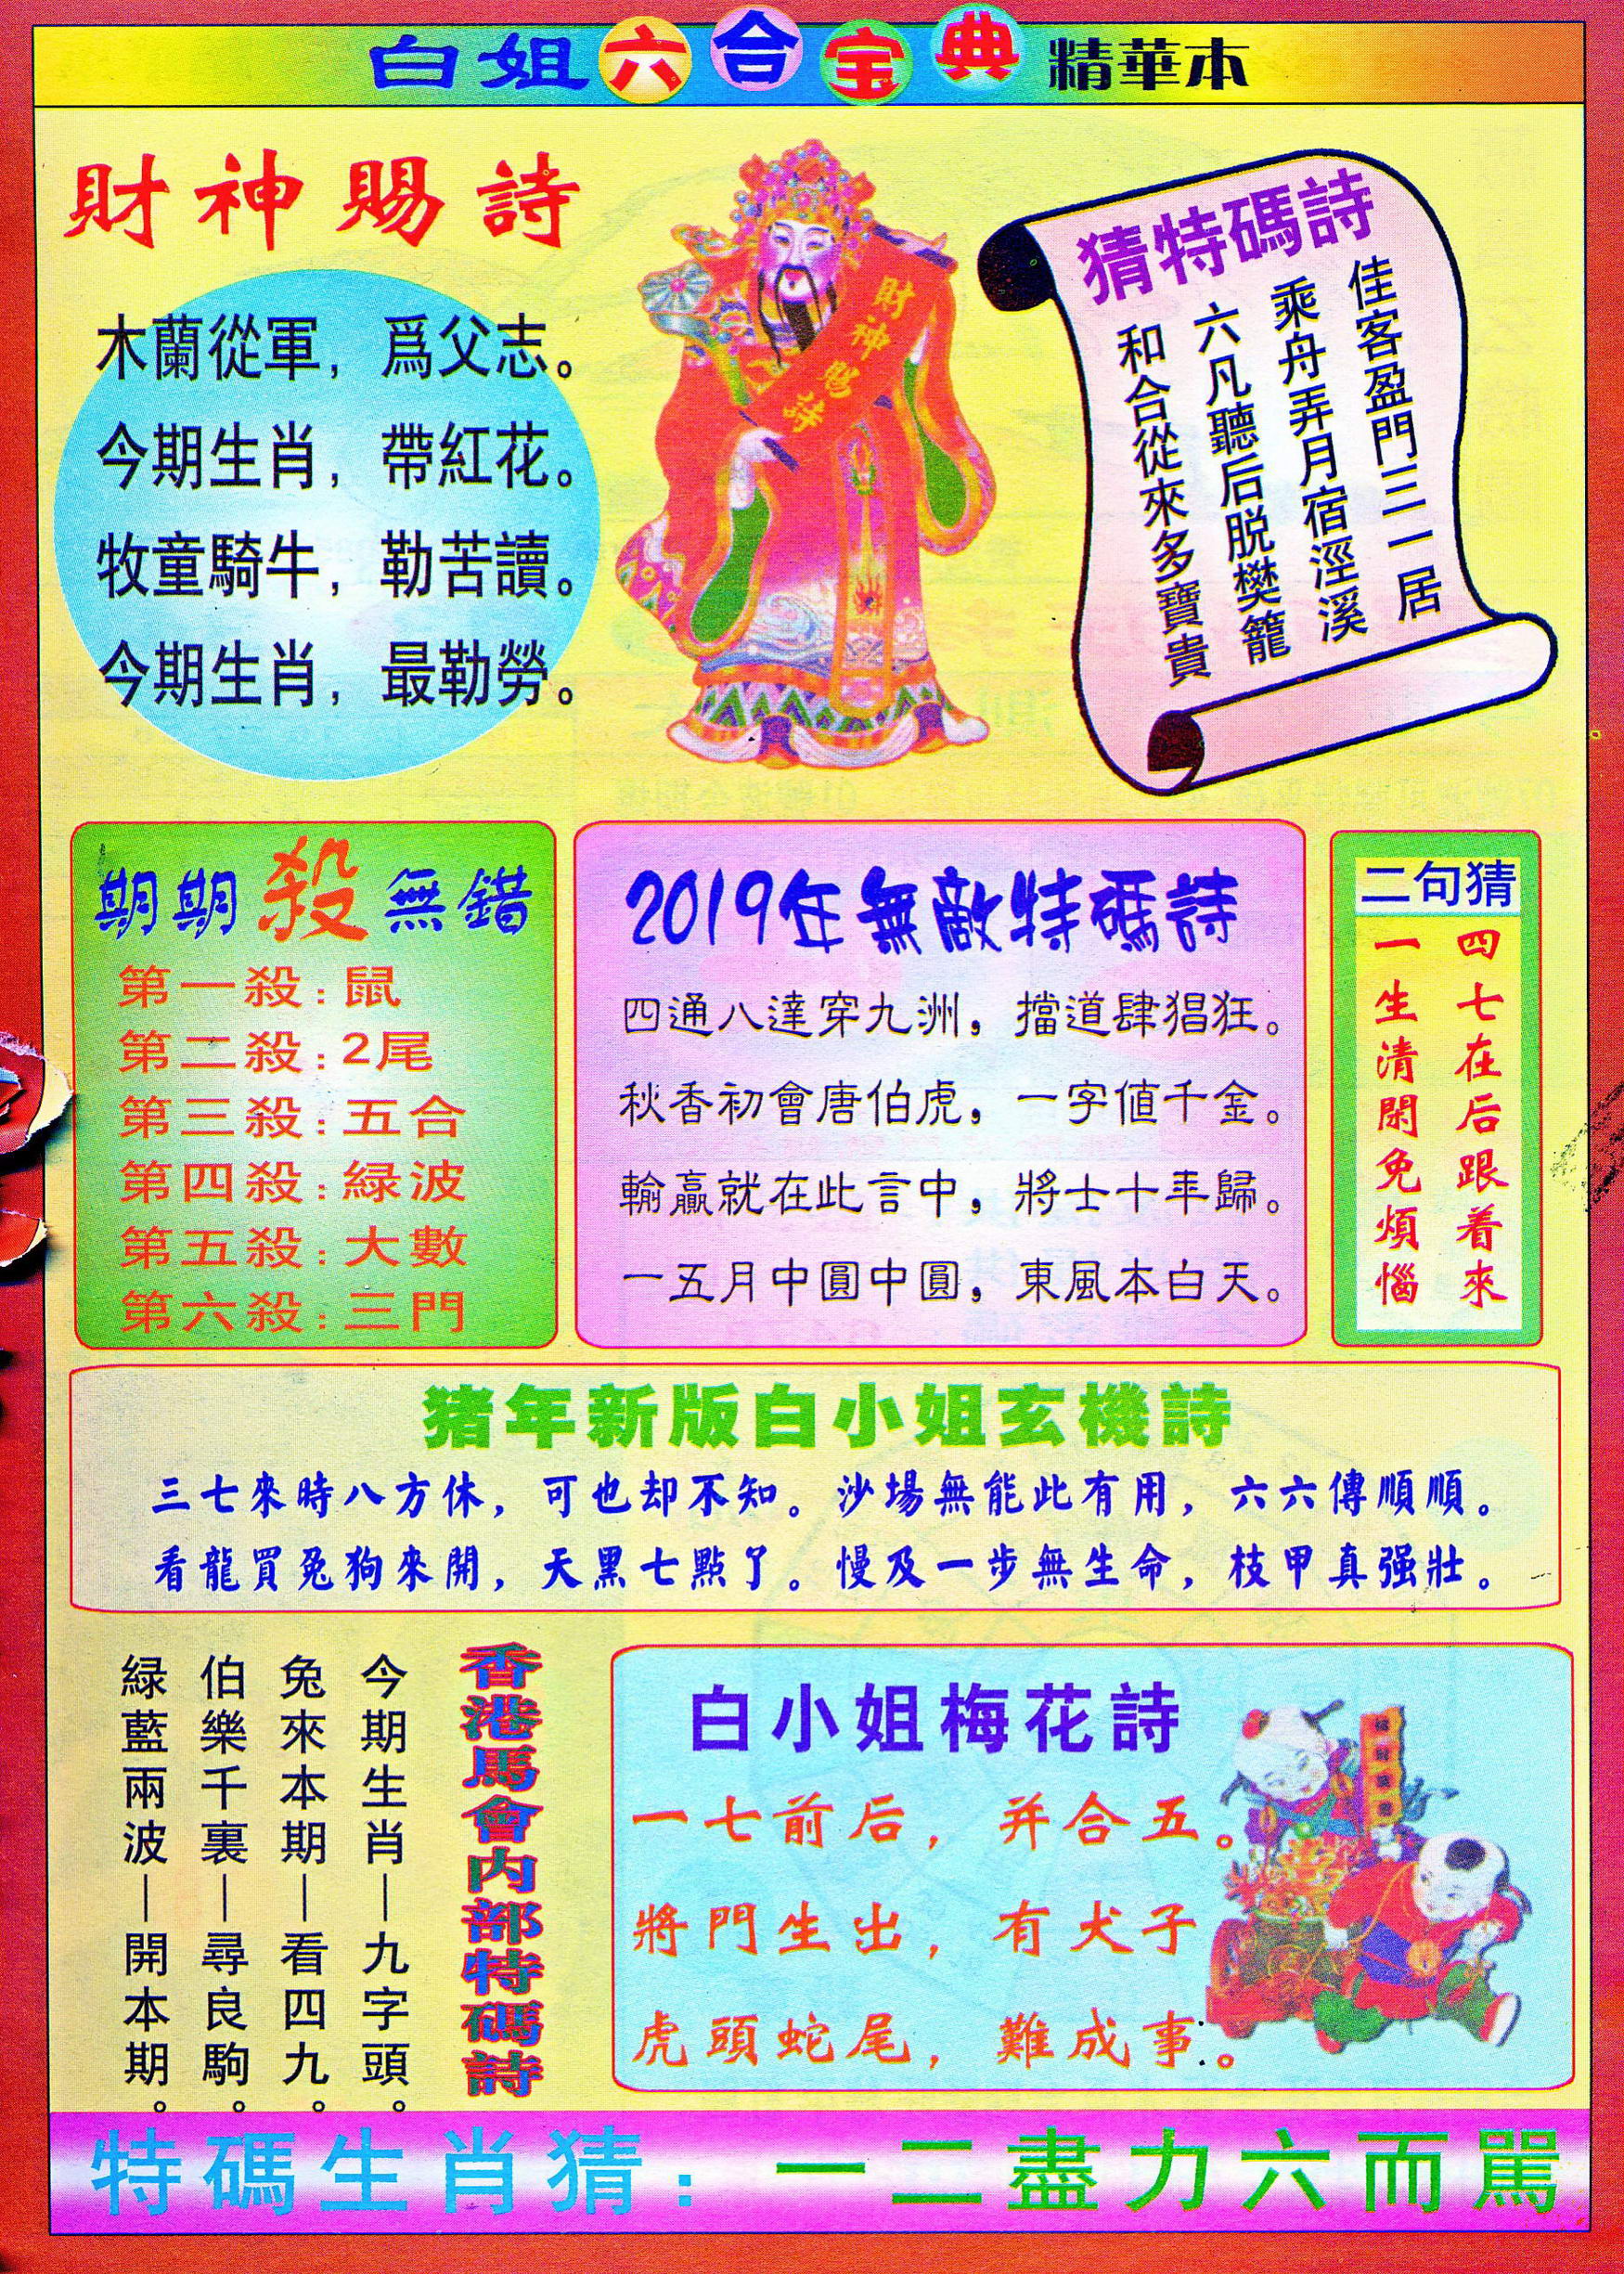 白姐六合宝典精華本
財神賜詩
木蘭從軍，爲父志。
今期生肖，帶紅花。
牧童騎牛，勒苦讀。
今期生肖，最勒勞。
財神賜詩
猜特碼詩
佳客盈門三一居
乘舟弄月宿涇溪
六凡聽后脱樊籠
和合從來多寶貴
期期殺無錯
第一殺:鼠
第二殺:2尾
第三殺:五合
第四殺:緑波
第五殺:大數
第六殺:三門
2019年無敵特碼詩
四通八達穿九洲，擋道肆猖狂。
秋香初會唐伯虎，一字值千金。
輸贏就在此言中，將士十年歸。
一五月中圓中圓，東風本白天。
二句猜
四七在后跟着來
一生清閑免煩惱
猪年新版白小姐玄機詩
三七來時八方休，可也却不知。沙場無能此有用，六六傳順順。
看龍買兔狗來開，天黑七點了。慢及一步無生命，枝甲真强壯。
香港馬會内部特碼詩
今期生肖—九字頭。
兔來本期—看四九。
伯樂千裏—尋良駒。
緑藍兩波—開本期。
白小姐梅花詩
一七前后，并合五。
將門生出，有犬子
虎頭蛇尾，難成事。
特碼生肖猜：一二盡力六而駡